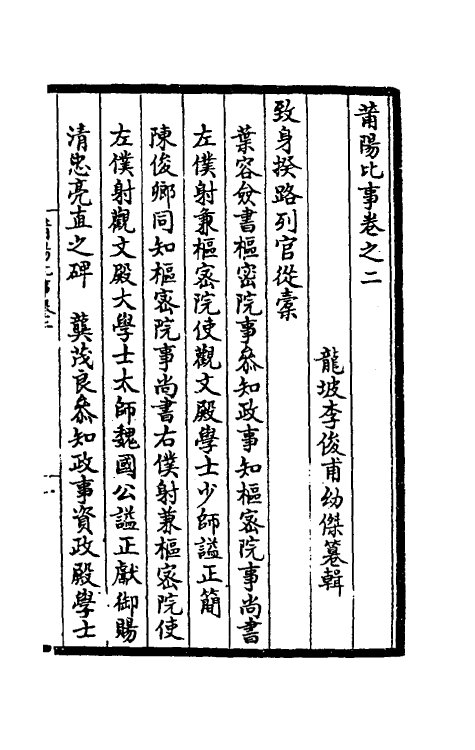 莆陽比事卷之二
龍坡李俊甫幼傑篹輯
致身揆路列官從橐
葉容僉書樞密院事叅知政事知樞密院事尚書
左僕射兼樞密院使觀文殿學士少師謚正簡
陳俊卿同知樞密院事尚書右僕射兼樞密院使
左僕射觀文殿大學士太師魏國公謚正獻御賜
清忠亮直之碑　龔茂良叅知政事資政殿學士